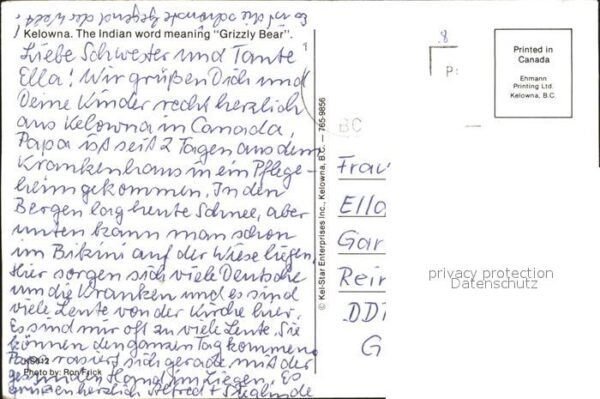 Es ist die schönste Gegend der Welt!
Kelowna. The Indian word meaning "Grizzly Bear".
Liebe Schwester und Tante
Ella! Wir grüßen Dich und
Deine Kinder recht herzlich
aus Kelowna in Canada,
Papa ist seit 2 Tagen aus dem
Krankenhaus in ein Pflege-
heim gekommen. In den
Bergen lag heute Schnee, aber
unten kann man schon
im Bikini auf der Wiese liegen.
Hier sorgen sich viele Deutsche
um die Kranken und es sind
viele Leute von der Kirche hier.
Es sind mir oft zu viele Leute. Sie
können den ganzen Tag kommen.
Papa rasiert sich gerade mit der
gesunden Hand im Liegen. Es
Photo by: Ron Frick
grüßen herzlich Alfred + Sieglinde
© Kel-Star Enterprises Inc., Kelowna, B.C. — 765-9856
.8
P:
BC
Printed in
Canada
Ehmann
Printing Ltd.
Kelowna, B.C.
Frau
Ella
Gar
Rein
DDR
G
privacy protection
Datenschutz